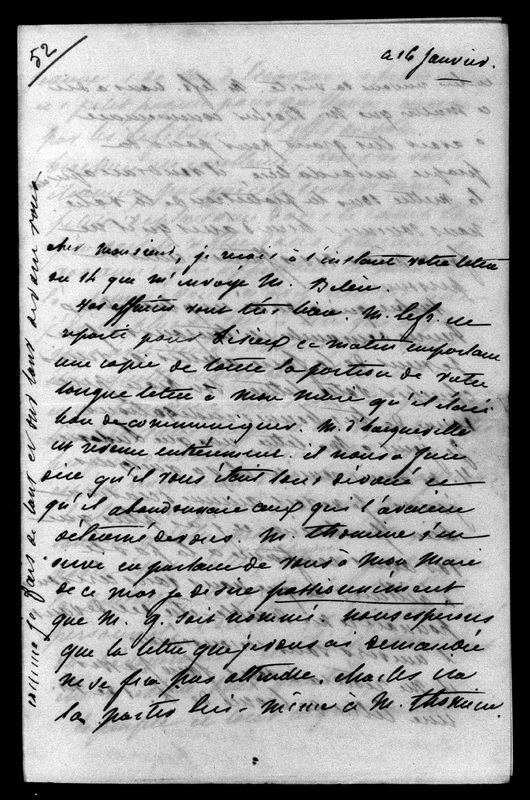 52
ce 16 janvier.
cher monsieur, je reçois à l'instant votre lettre
du 14 que m'envoye M. Belin.
Vos affaires vont très bien. M. lefr. est
reparti pour Lisieux ce matin emportant
une copie de toute la portion de votre
longue lettre à mon mari qu'il était
bon de communiquer. M. d'hacqueville
est revenu entièrement. il nous a fait
dire qu'il vous était tout dévoué et
qu'il abandonnait ceux qui l'avaient
détourné de vous. M. thomine s'en
suivi en parlant de vous à mon mari
de ce mot je désire passionnément
que M. g. soit nommé. nous espérons
que la lettre que je vous ai demandée
ne se fera pas attendre. charles ira
la porter lui-même à M. thomine.
comme je fais de tout ce qui vous